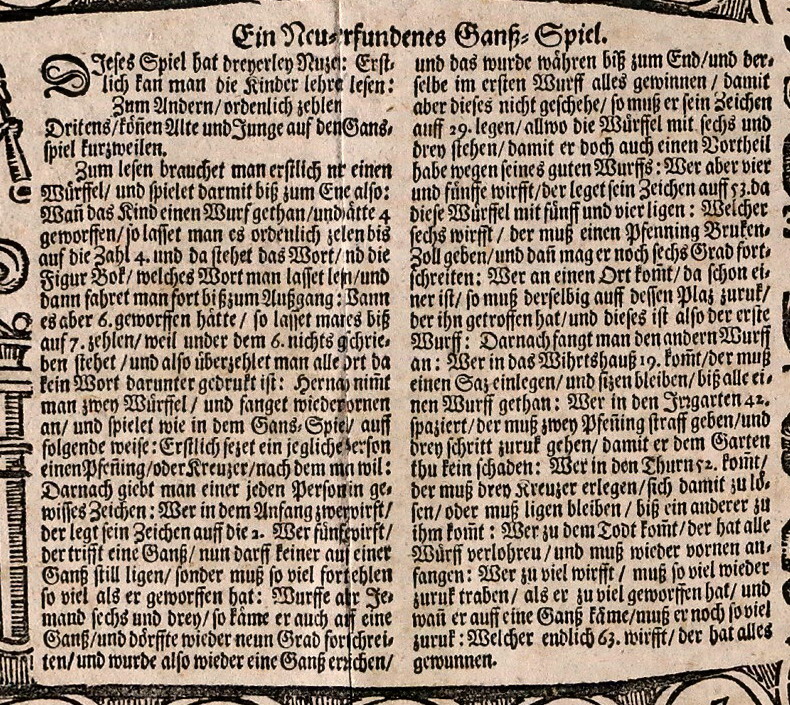 Ein Neu-erfundenes Ganß-Spiel.
DIeses Spiel hat dreyerley Nuzen: Erst-
lich kan man die Kinder lehren lesen:
Zum Andern/ordenlich zehlen
Dritens/köñen Alte und Junge auf den Gans-
spiel kurzweilen.
Zum lesen brauchet man erstlich nur einen
Würffel/ und spielet darmit biß zum Ende also:
Wañ das Kind einen Wurf gethan/und hätte 4
geworffen/so lasset man es ordenlich zelen bis
auf die Zahl 4. und da stehet das Wort/ und die
Figur Bok/ welches Wort man lasset lesen/und
dann fahret man fort biß zum Außgang: Wann
es aber 6. geworffen hätte/ so lasset man es biß
auf 7. zehlen/ weil unter dem 6. nichts geschrie-
ben stehet/und also überzehlet man alle Ort da
kein Wort darunter gedrukt ist: Hernach nimt
man zwey Würffel/ und fanget wieder vornen
an/ und spielet wie in dem Gans-Spiel auff
folgende weise: Erstlich sezet ein jegliche Person
einen Pfeñing/oder Kreuzer/nach dem man wil:
Darnach giebt man einer jeden Person ein ge-
wisses Zeichen: Wer in dem Anfang zwey wirft/
der legt sein Zeichen auff die 2. Wer fünfe wirft/
der trifft eine Ganß/ nun darff keiner auf einer
Ganß still ligen/ sonder muß so viel fort zehlen
so viel als er geworffen hat: Wurffe aber Je-
mand sechs und drey/ so käme er auch auf eine
Ganß/und dörffte wieder neun Grad fortschrei-
ten/ und wurde also wieder eine Ganß erreichen/
und das wurde währen biß zum End/und der-
selbe im ersten Wurff alles gewinnen/ damit
aber dieses nicht geschehe/ so muß er sein Zeichen
auff 29. legen/ allwo die Würffel mit sechs und
drey stehen/ damit er doch auch einen Vortheil
habe wegen seines guten Wurffs: Wer aber vier
und fünffe wirfft/der leget sein Zeichen auff 53. da
diese Würffel mit fünff und vier ligen: Welcher
sechs wirfft/ der muß einen Pfenning Bruken-
Zoll geben/ und dañ mag er noch sechs Grad fort-
schreiten: Wer an einen Ort komt/ da schon ei-
ner ist/ so muß derselbig auff dessen Plaz zuruk/
der ihn getroffen hat/ und dieses ist also der erste
Wurff: Darnach fangt man den andern Wurff
an: Wer in das Wihrtshauß 19. komt/der muß
einen Saz einlegen/ und sizen bleiben/ biß alle ei-
nen Wurff gethan: Wer in den Irrgarten 42.
spaziert/ der muß zwey Pfeñing straff geben/und
drey schritt zuruk gehen/ damit er dem Garten
thu kein schaden: Wer in den Thurn 52. komt/
der muß drey Kreuzer erlegen/sich damit zu lö-
sen/ oder muß ligen bleiben/ biß ein anderer zu
ihm komt: Wer zu dem Todt komt/der hat alle
Würff verlohreu/ und muß wieder vornen an-
fangen: Wer zu viel wirfft/ muß so viel wieder
zuruk traben/ als er zu viel geworffen hat/ und
wañ er auff eine Ganß käme/muß er noch so viel
zuruk: Welcher endlich 63. wirfft/ der hat alles
gewunnen.